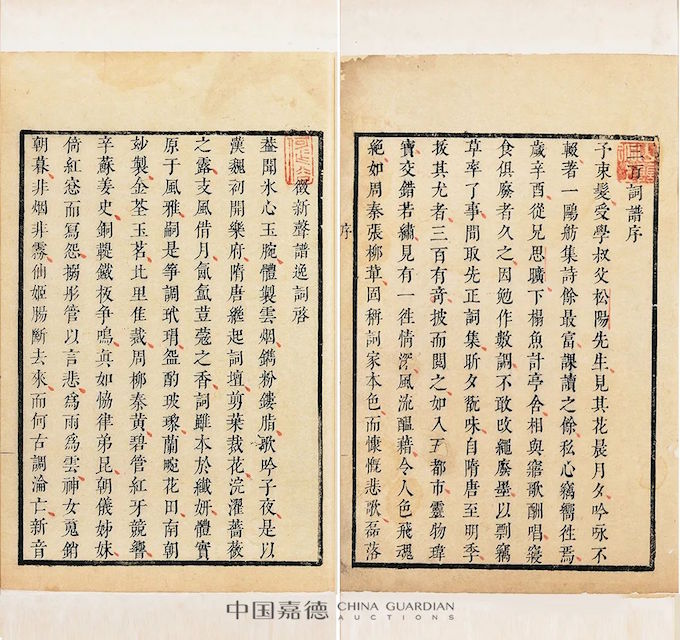 三百詞譜序
予束髮受學叔父松陽先生見其花晨月夕吟咏不
輟著一鷗舫集詩餘最富課讀之餘私心竊嚮徃焉
歲辛酉從兄思曠下榻魚計亭舍相與寤歌酬唱寢
食俱廢者久之因勉作數調不敢攺繩廢墨以剽竊
草率了事間取先正詞集昕夕翫味自隋唐至明季
拔其尤者三百有竒披而閱之如入五都市靈物瑋
寶交錯若繡見有一徃情深風流醖藉令人色飛魂
絶如周秦張柳草固稱詞家本色而慷慨悲歌磊落
序
徵新聲譜逸詞啓
葢聞氷心玉腕體製雲烟鐫粉鏤脂歌吟子夜是以
漢魏初開樂府隋唐繼起詞壇剪葉裁花浣濯薔薇
之露支風借月氤氲荳蔻之香詞雖本於纖妍體實
原于風雅嗣是箏調玳瑁盌酌玻瓈蘭畹花田南朝
玅製金荃玉茗北里隹裁周柳秦黄碧管紅牙競響
辛蘇姜史銅鞮鐵板争鳴真如恊律弟昆朝儀姊妹
倚紅窓而寫怨搦彤管以言悲爲雨爲雲神女䰟銷
朝暮非烟非霧仙姬腸斷去來而何古調淪亡新音
中国嘉德 CHINA GUARDIAN
AUCTIONS